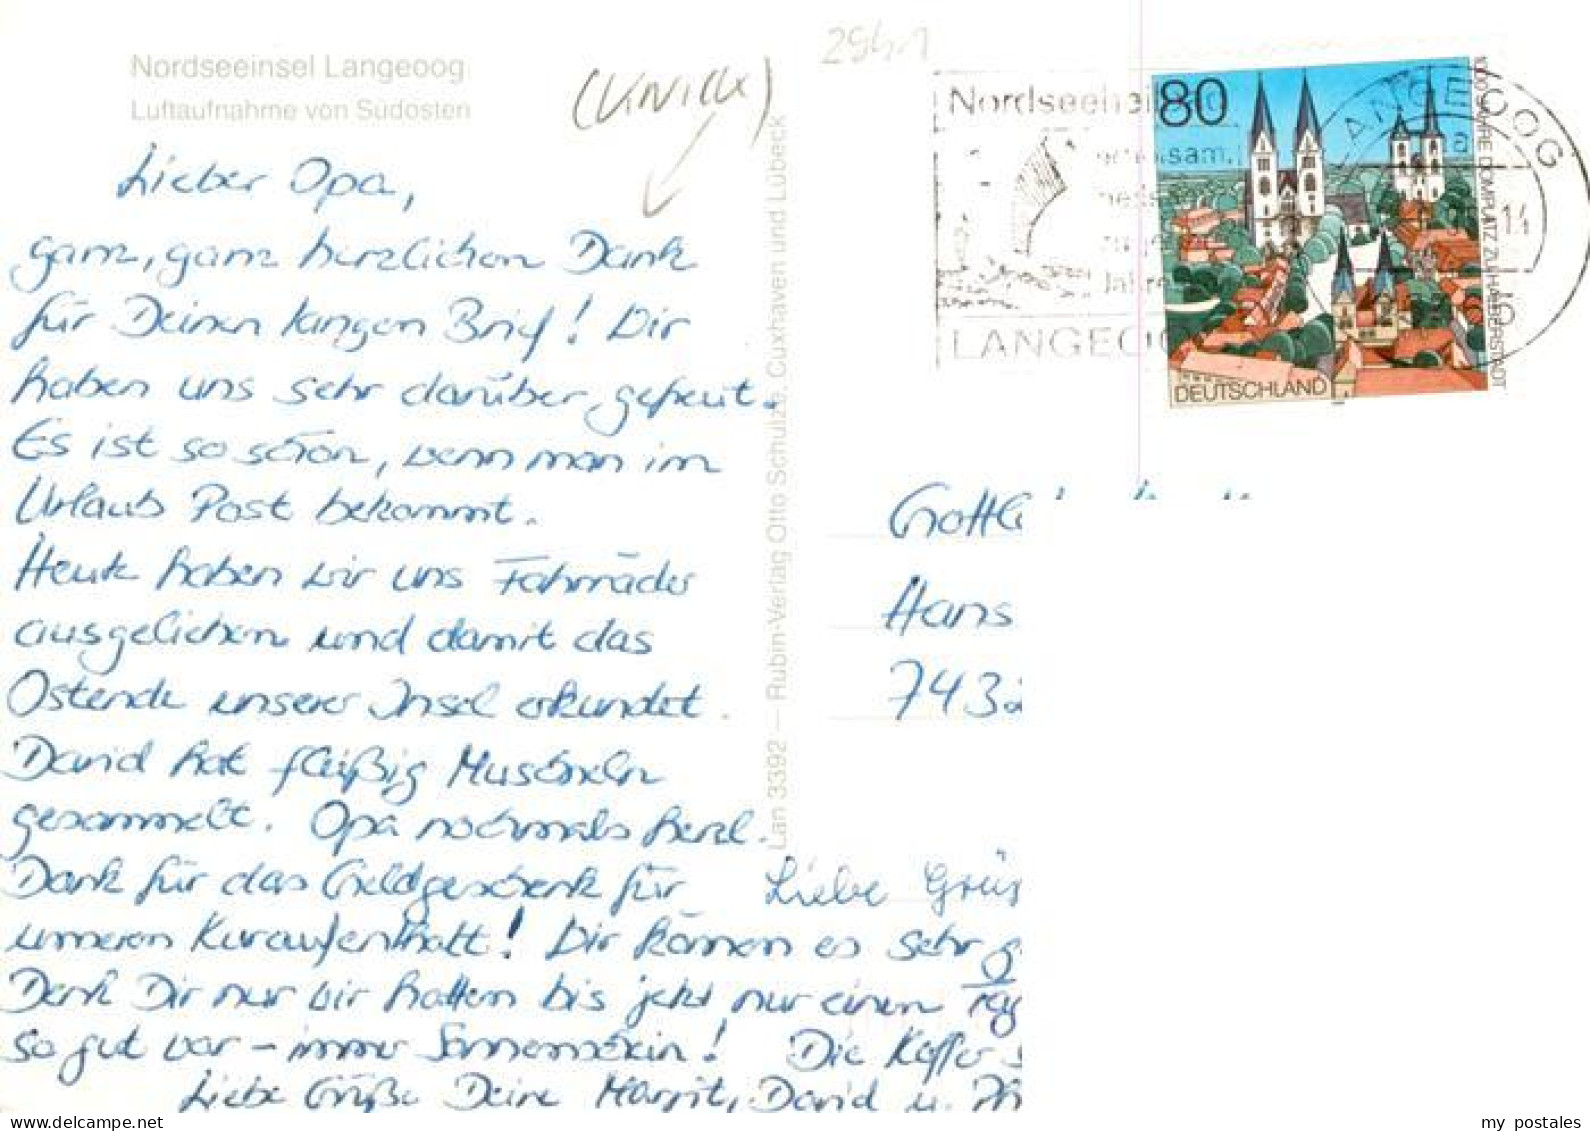 Nordseeinsel Langeoog
Luftaufnahme von Südosten
(KNICK)
2941
Lieber Opa,
ganz, ganz herzlichen Dank
für Deinen langen Brief! Wir
haben uns sehr darüber gefreut.
Es ist so schön, wenn man im
Urlaub Post bekommt.
Heute haben wir uns Fahrräder
ausgeliehen und damit das
Ostende unserer Insel erkundet.
David hat fleißig Muscheln
gesammelt. Opa nochmals herzl.
Dank für das Geldgeschenk für
unseren Kuraufenthalt! Wir können es sehr g
Denk Dir nur wir hatten bis jetzt nur einen Reg
so gut war – immer Sonnenschein! Die Koffer s
Liebe Grüße Deine Margit, David u.
Liebe Grüs
Lan 3392 — Rubin-Verlag Otto Schulze, Cuxhaven und Lübeck
Nordseehei
LANGEOO
LANGEOOG
a
14
80
DEUTSCHLAND
1000 JAHRE DOMPLATZ ZU HALBERSTADT
Gottl
Hans
7432
my postales